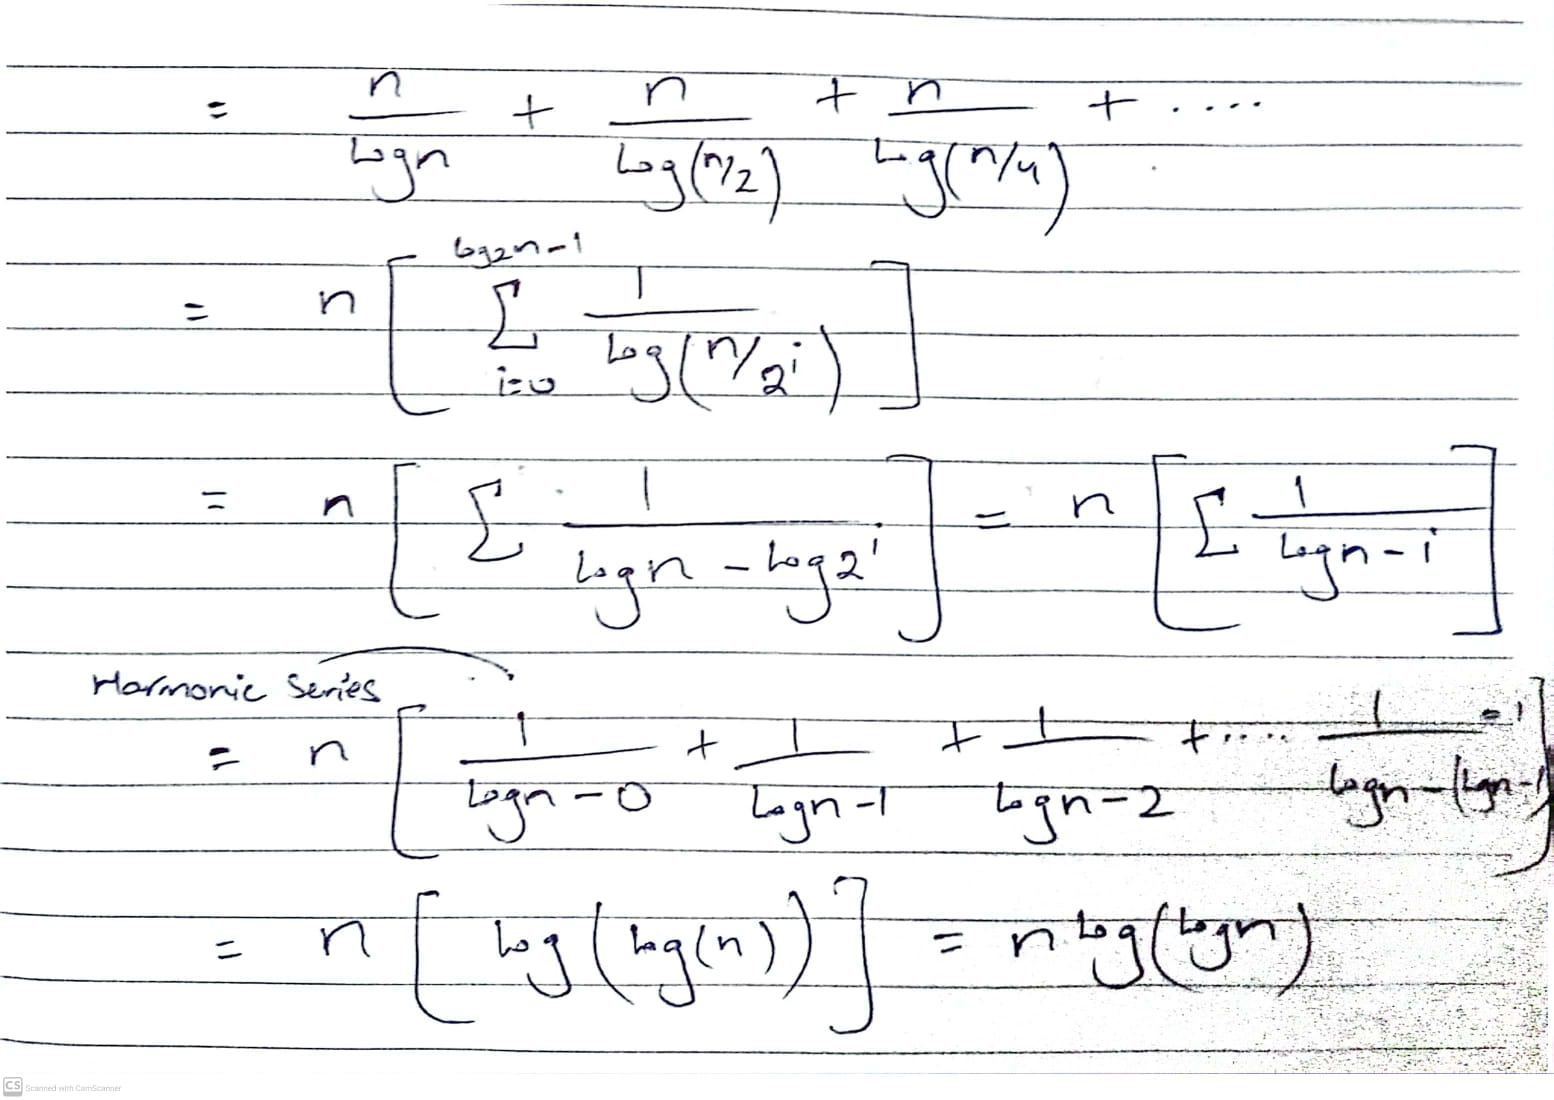 = n/logn + n/log(n/2) + n/log(n/4) + ....
= n [ Σ_{i=0}^{log₂n-1} 1/log(n/2^i) ]
= n [ Σ 1/(logn - log2^i) ] = n [ Σ 1/(logn - i) ]
Harmonic Series
= n [ 1/(logn-0) + 1/(logn-1) + 1/(logn-2) + .... 1/(logn-(logn-1)) = 1 ]
= n [ log(log(n)) ] = n log(logn)
CS Scanned with CamScanner